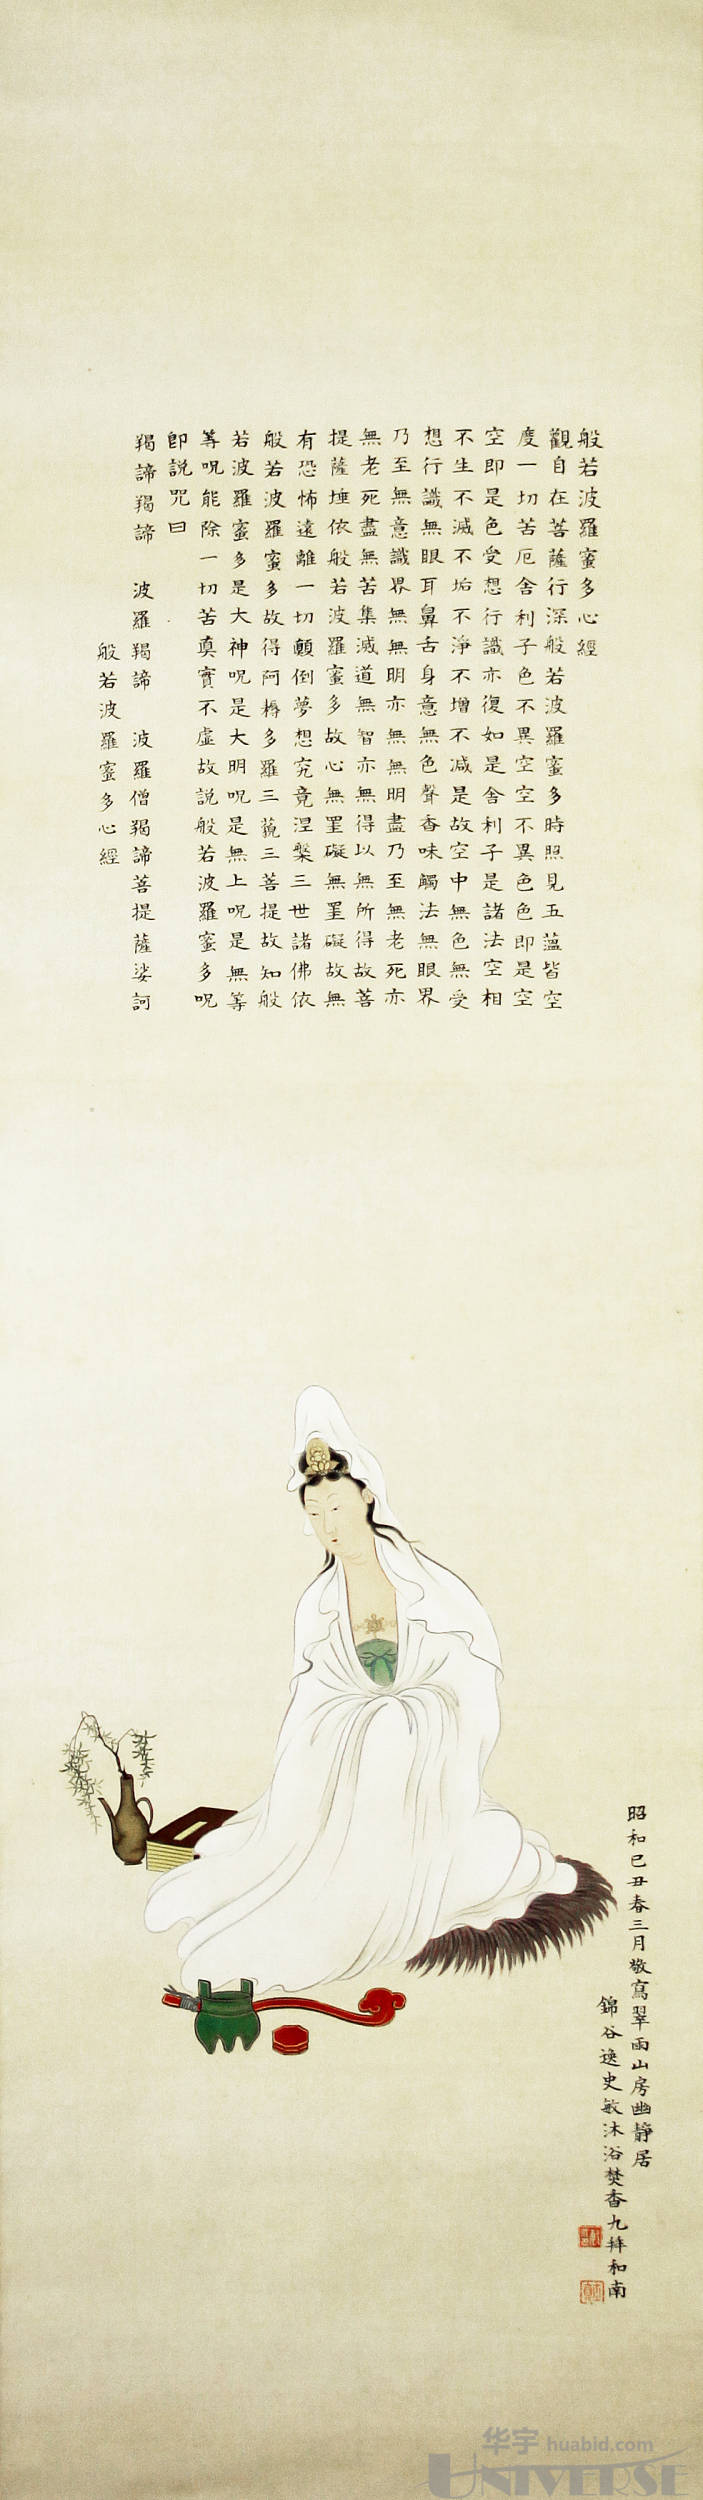 般若波羅蜜多心經
觀自在菩薩行深般若波羅蜜多時照見五蘊皆空
度一切苦厄舍利子色不異空空不異色色即是空
空即是色受想行識亦復如是舍利子是諸法空相
不生不滅不垢不淨不增不減是故空中無色無受
想行識無眼耳鼻舌身意無色聲香味觸法無眼界
乃至無意識界無無明亦無無明盡乃至無老死亦
無老死盡無苦集滅道無智亦無得以無所得故菩
提薩埵依般若波羅蜜多故心無罣礙無罣礙故無
有恐怖遠離一切顛倒夢想究竟涅槃三世諸佛依
般若波羅蜜多故得阿耨多羅三藐三菩提故知般
若波羅蜜多是大神呪是大明呪是無上呪是無等
等呪能除一切苦真實不虛故説般若波羅蜜多呪
即説咒曰
羯諦羯諦 波羅羯諦 波羅僧羯諦菩提薩娑訶
般若波羅蜜多心經
昭和己丑春三月敬寫翠雨山房幽靜居
錦谷逸史敏沐浴焚香九拝和南
华宇 huabid.com
UNIVERSE